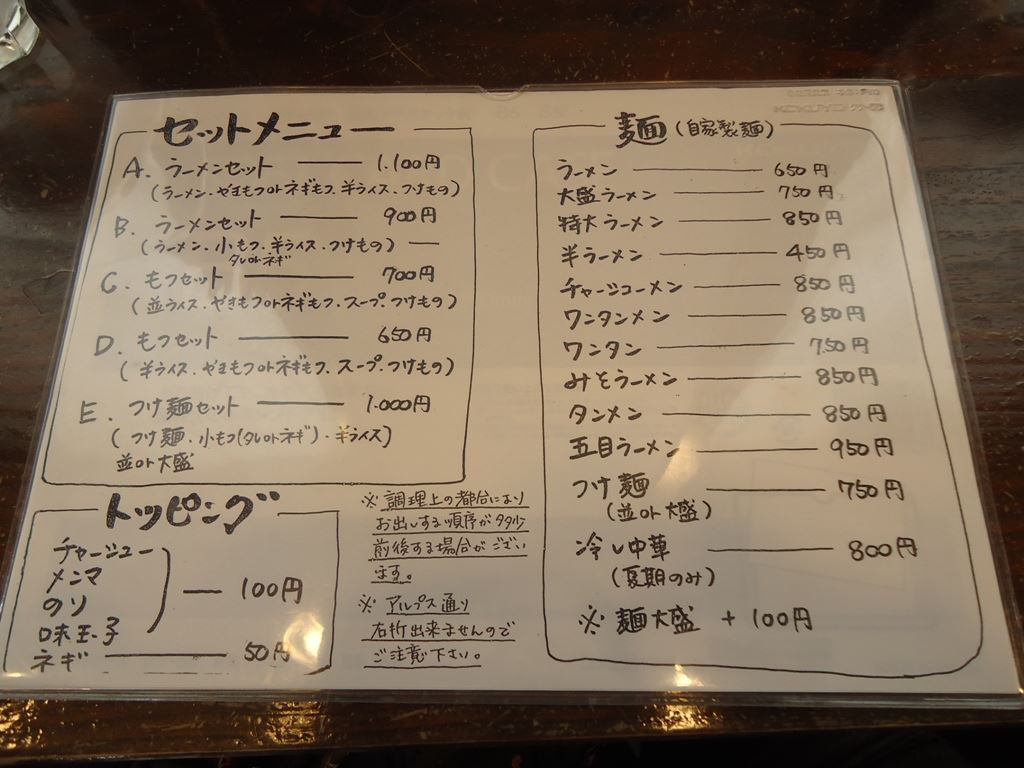 セットメニュー
A. ラーメンセット 1.100円
(ラーメン・やきもつorネギもつ.半ライス・つけもの)
B. ラーメンセット 900円
(ラーメン.小もつ.半ライス・つけもの)
タレorネギ
C. もつセット 700円
(並ライス・やきもつorネギもつ.スープ.つけもの)
D. もつセット 650円
(半ライス.やきもつorネギもつ.スープ.つけもの)
E. つけ麺セット 1.000円
(つけ麺.小もつ(タレorネギ)・半ライス)
並or大盛
トッピング
チャーシュー
メンマ
のり
味玉子
100円
ネギ 50円
※ 調理上の都合により
お出しする順序が多少
前後する場合がござい
ます。
※ アルプス通り
右折出来ませんので
ご注意下さい。
麺(自家製麺)
ラーメン 650円
大盛ラーメン 750円
特大ラーメン 850円
半ラーメン 450円
チャーシューメン 850円
ワンタンメン 850円
ワンタン 750円
みそラーメン 850円
タンメン 850円
五目ラーメン 950円
つけ麺 750円
(並or大盛)
冷し中華 800円
(夏期のみ)
※ 麺大盛 + 100円